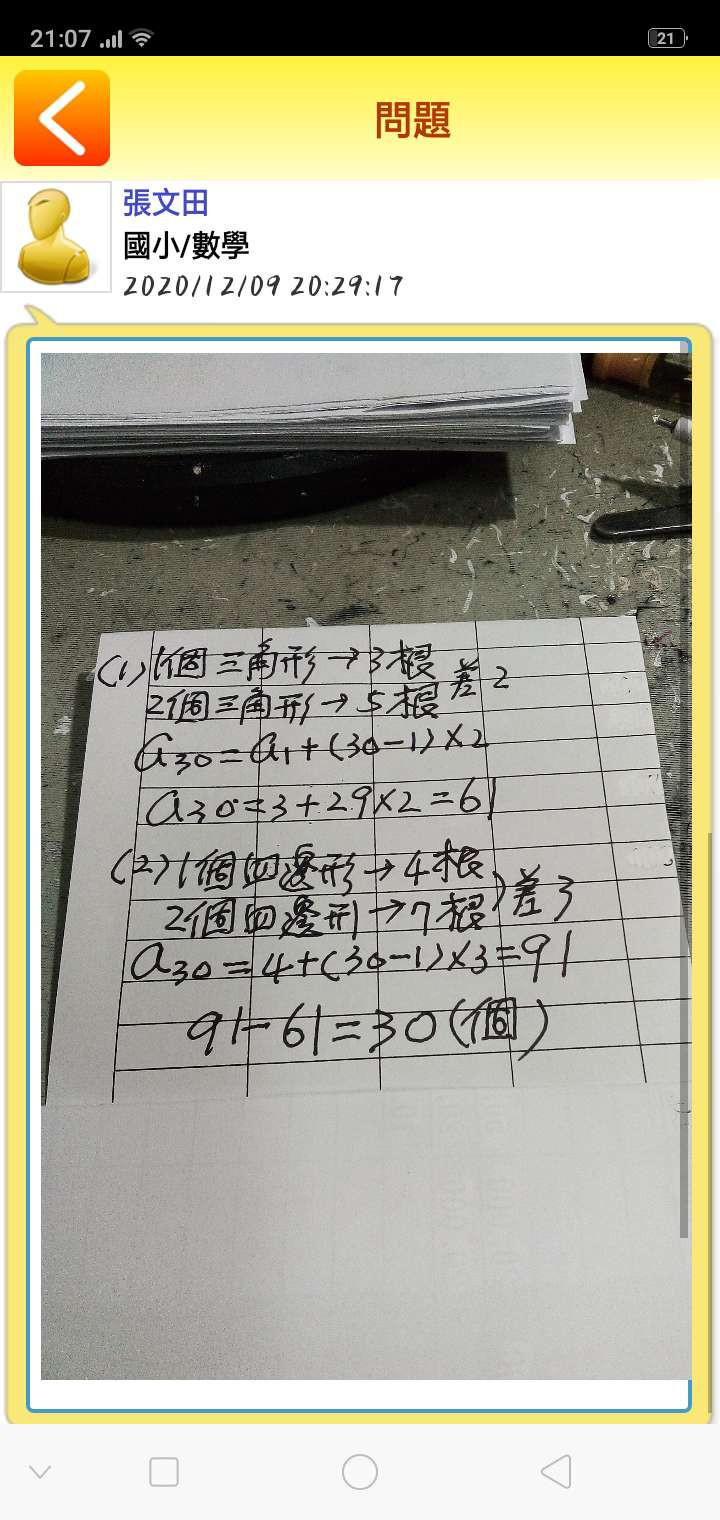 21:07
21
問題
張文田
國小/數學
2020/12/09 20:29:17
(1) 1個三角形→3根
2個三角形→5根 差2
a30=a1+(30-1)×2
a30=3+29×2=61
(2) 1個四邊形→4根
2個四邊形→7根 )差3
a30=4+(30-1)×3=91
91-61=30(個)